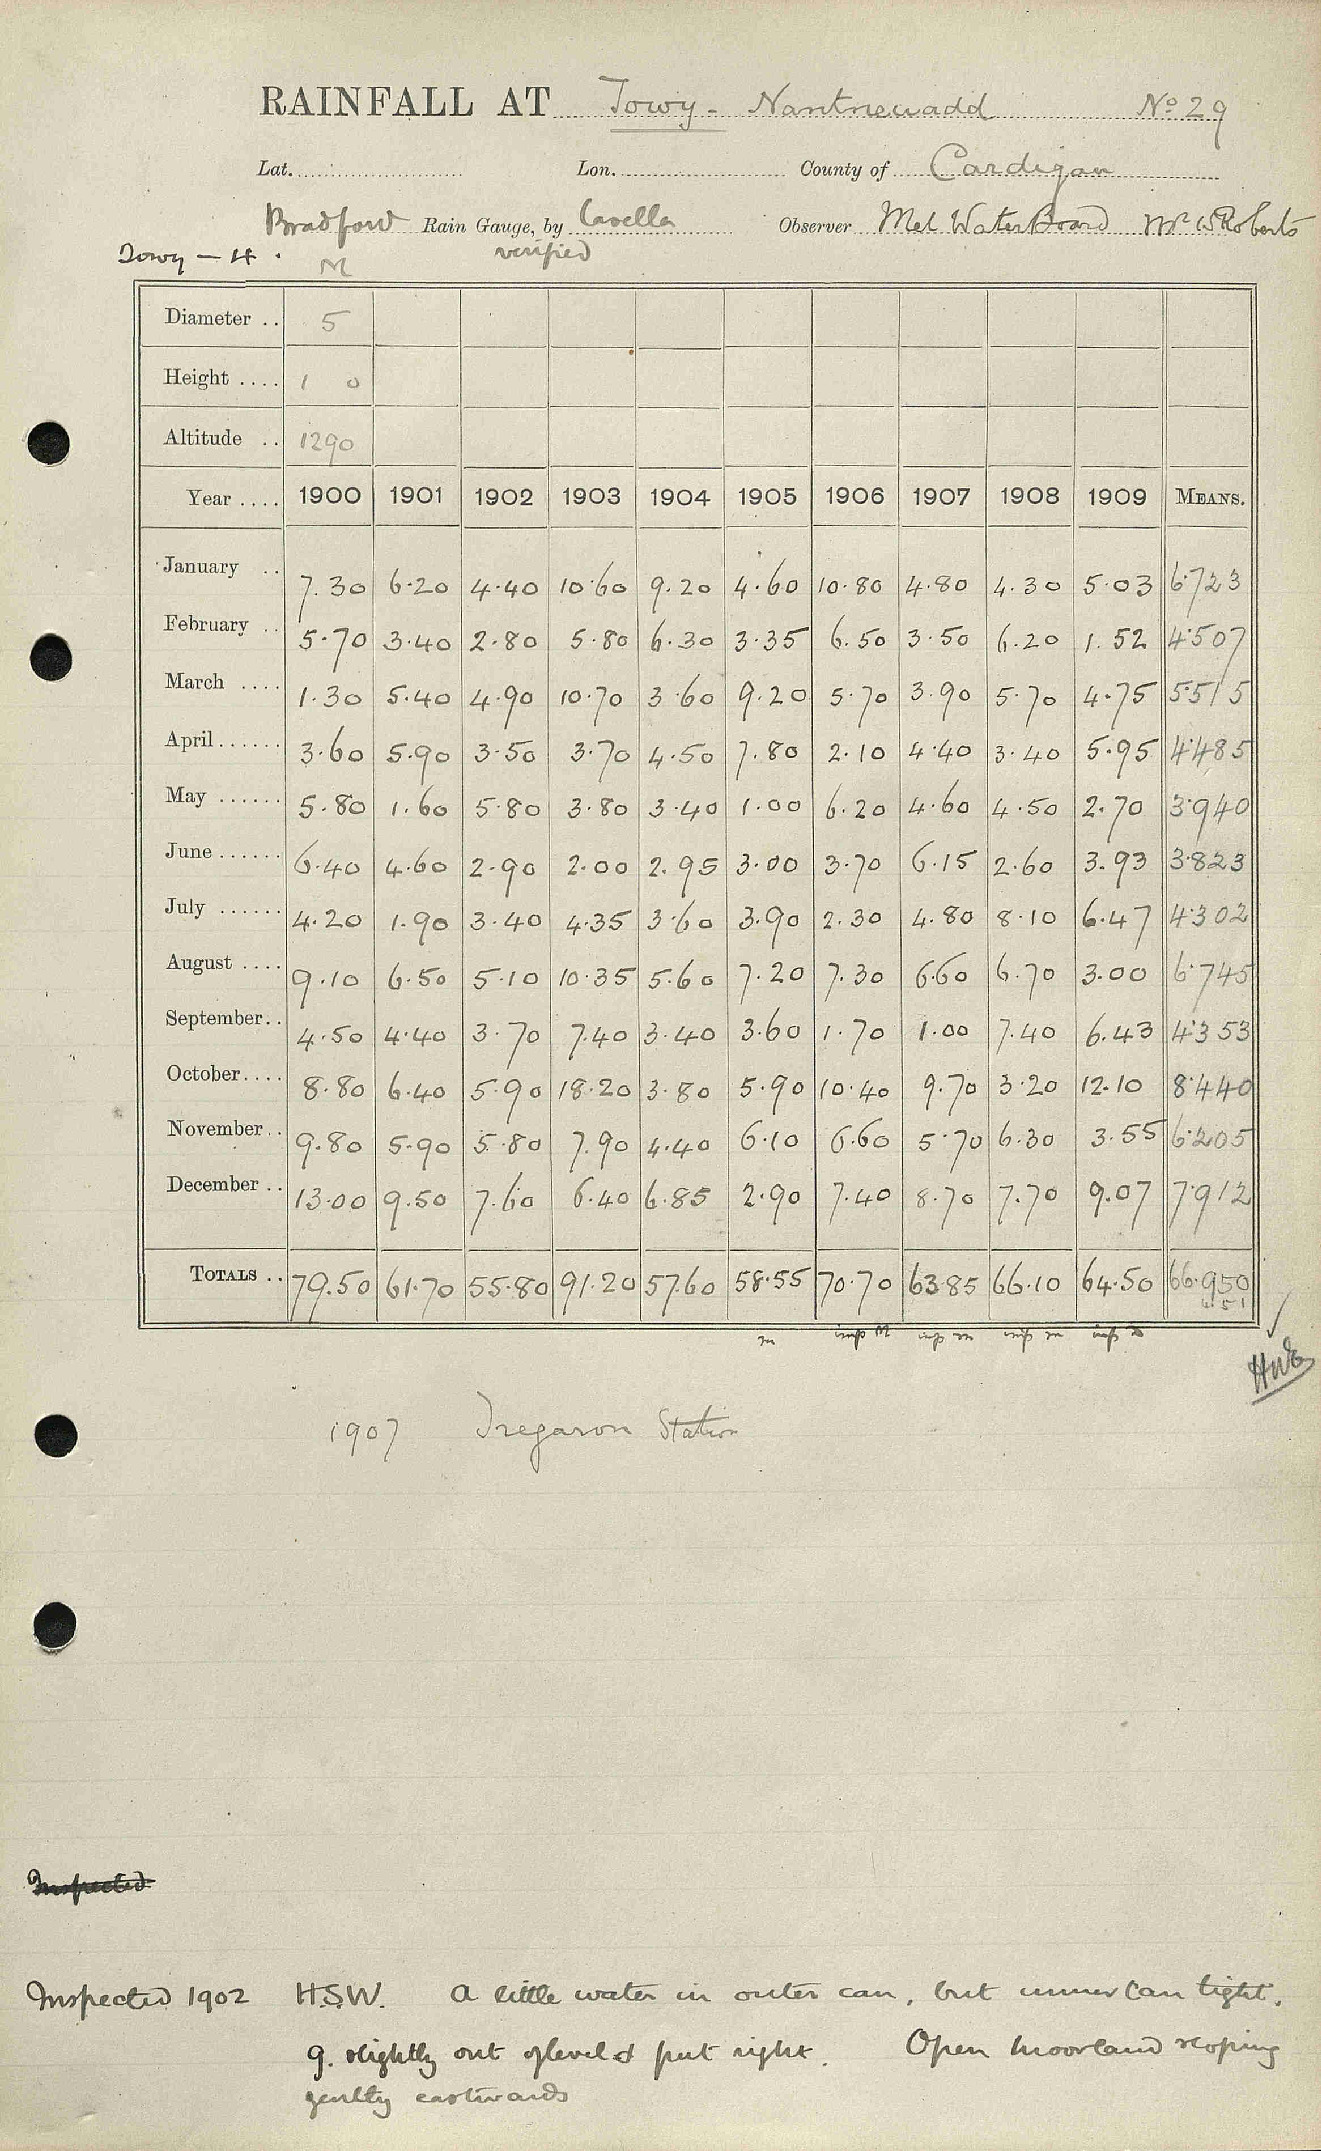 RAINFALL AT Towy - Nantneuadd No 29
Lat. Lon. County of Cardigan
Bradford Rain Gauge, by Casella Observer Met Water Board Mr W Roberts
Towy - 4. M verified
Diameter .. 5
Height .... 1 0
Altitude .. 1290
Year .... 1900 1901 1902 1903 1904 1905 1906 1907 1908 1909 MEANS.
January .. 7.30 6.20 4.40 10.60 9.20 4.60 10.80 4.80 4.30 5.03 6.723
February .. 5.70 3.40 2.80 5.80 6.30 3.35 6.50 3.50 6.20 1.52 4.507
March .... 1.30 5.40 4.90 10.70 3.60 9.20 5.70 3.90 5.70 4.75 5.515
April ...... 3.60 5.90 3.50 3.70 4.50 7.80 2.10 4.40 3.40 5.95 4.485
May ...... 5.80 1.60 5.80 3.80 3.40 1.00 6.20 4.60 4.50 2.70 3.940
June ...... 6.40 4.60 2.90 2.00 2.95 3.00 3.70 6.15 2.60 3.93 3.823
July ...... 4.20 1.90 3.40 4.35 3.60 3.90 2.30 4.80 8.10 6.47 4.302
August .... 9.10 6.50 5.10 10.35 5.60 7.20 7.30 6.60 6.70 3.00 6.745
September.. 4.50 4.40 3.70 7.40 3.40 3.60 1.70 1.00 7.40 6.43 4.353
October.... 8.80 6.40 5.90 18.20 3.80 5.90 10.40 9.70 3.20 12.10 8.440
November.. 9.80 5.90 5.80 7.90 4.40 6.10 6.60 5.70 6.30 3.55 6.205
December .. 13.00 9.50 7.60 6.40 6.85 2.90 7.40 8.70 7.70 9.07 7.912
TOTALS .. 79.50 61.70 55.80 91.20 57.60 58.55 70.70 63.85 66.10 64.50 66.950
m imp M imp m imp m imp
1907 Tregaron Station
Inspected
Inspected 1902 H.S.W. A little water in outer can, but inner can tight.
g. slightly out of level & put right. Open moorland sloping
gently eastwards